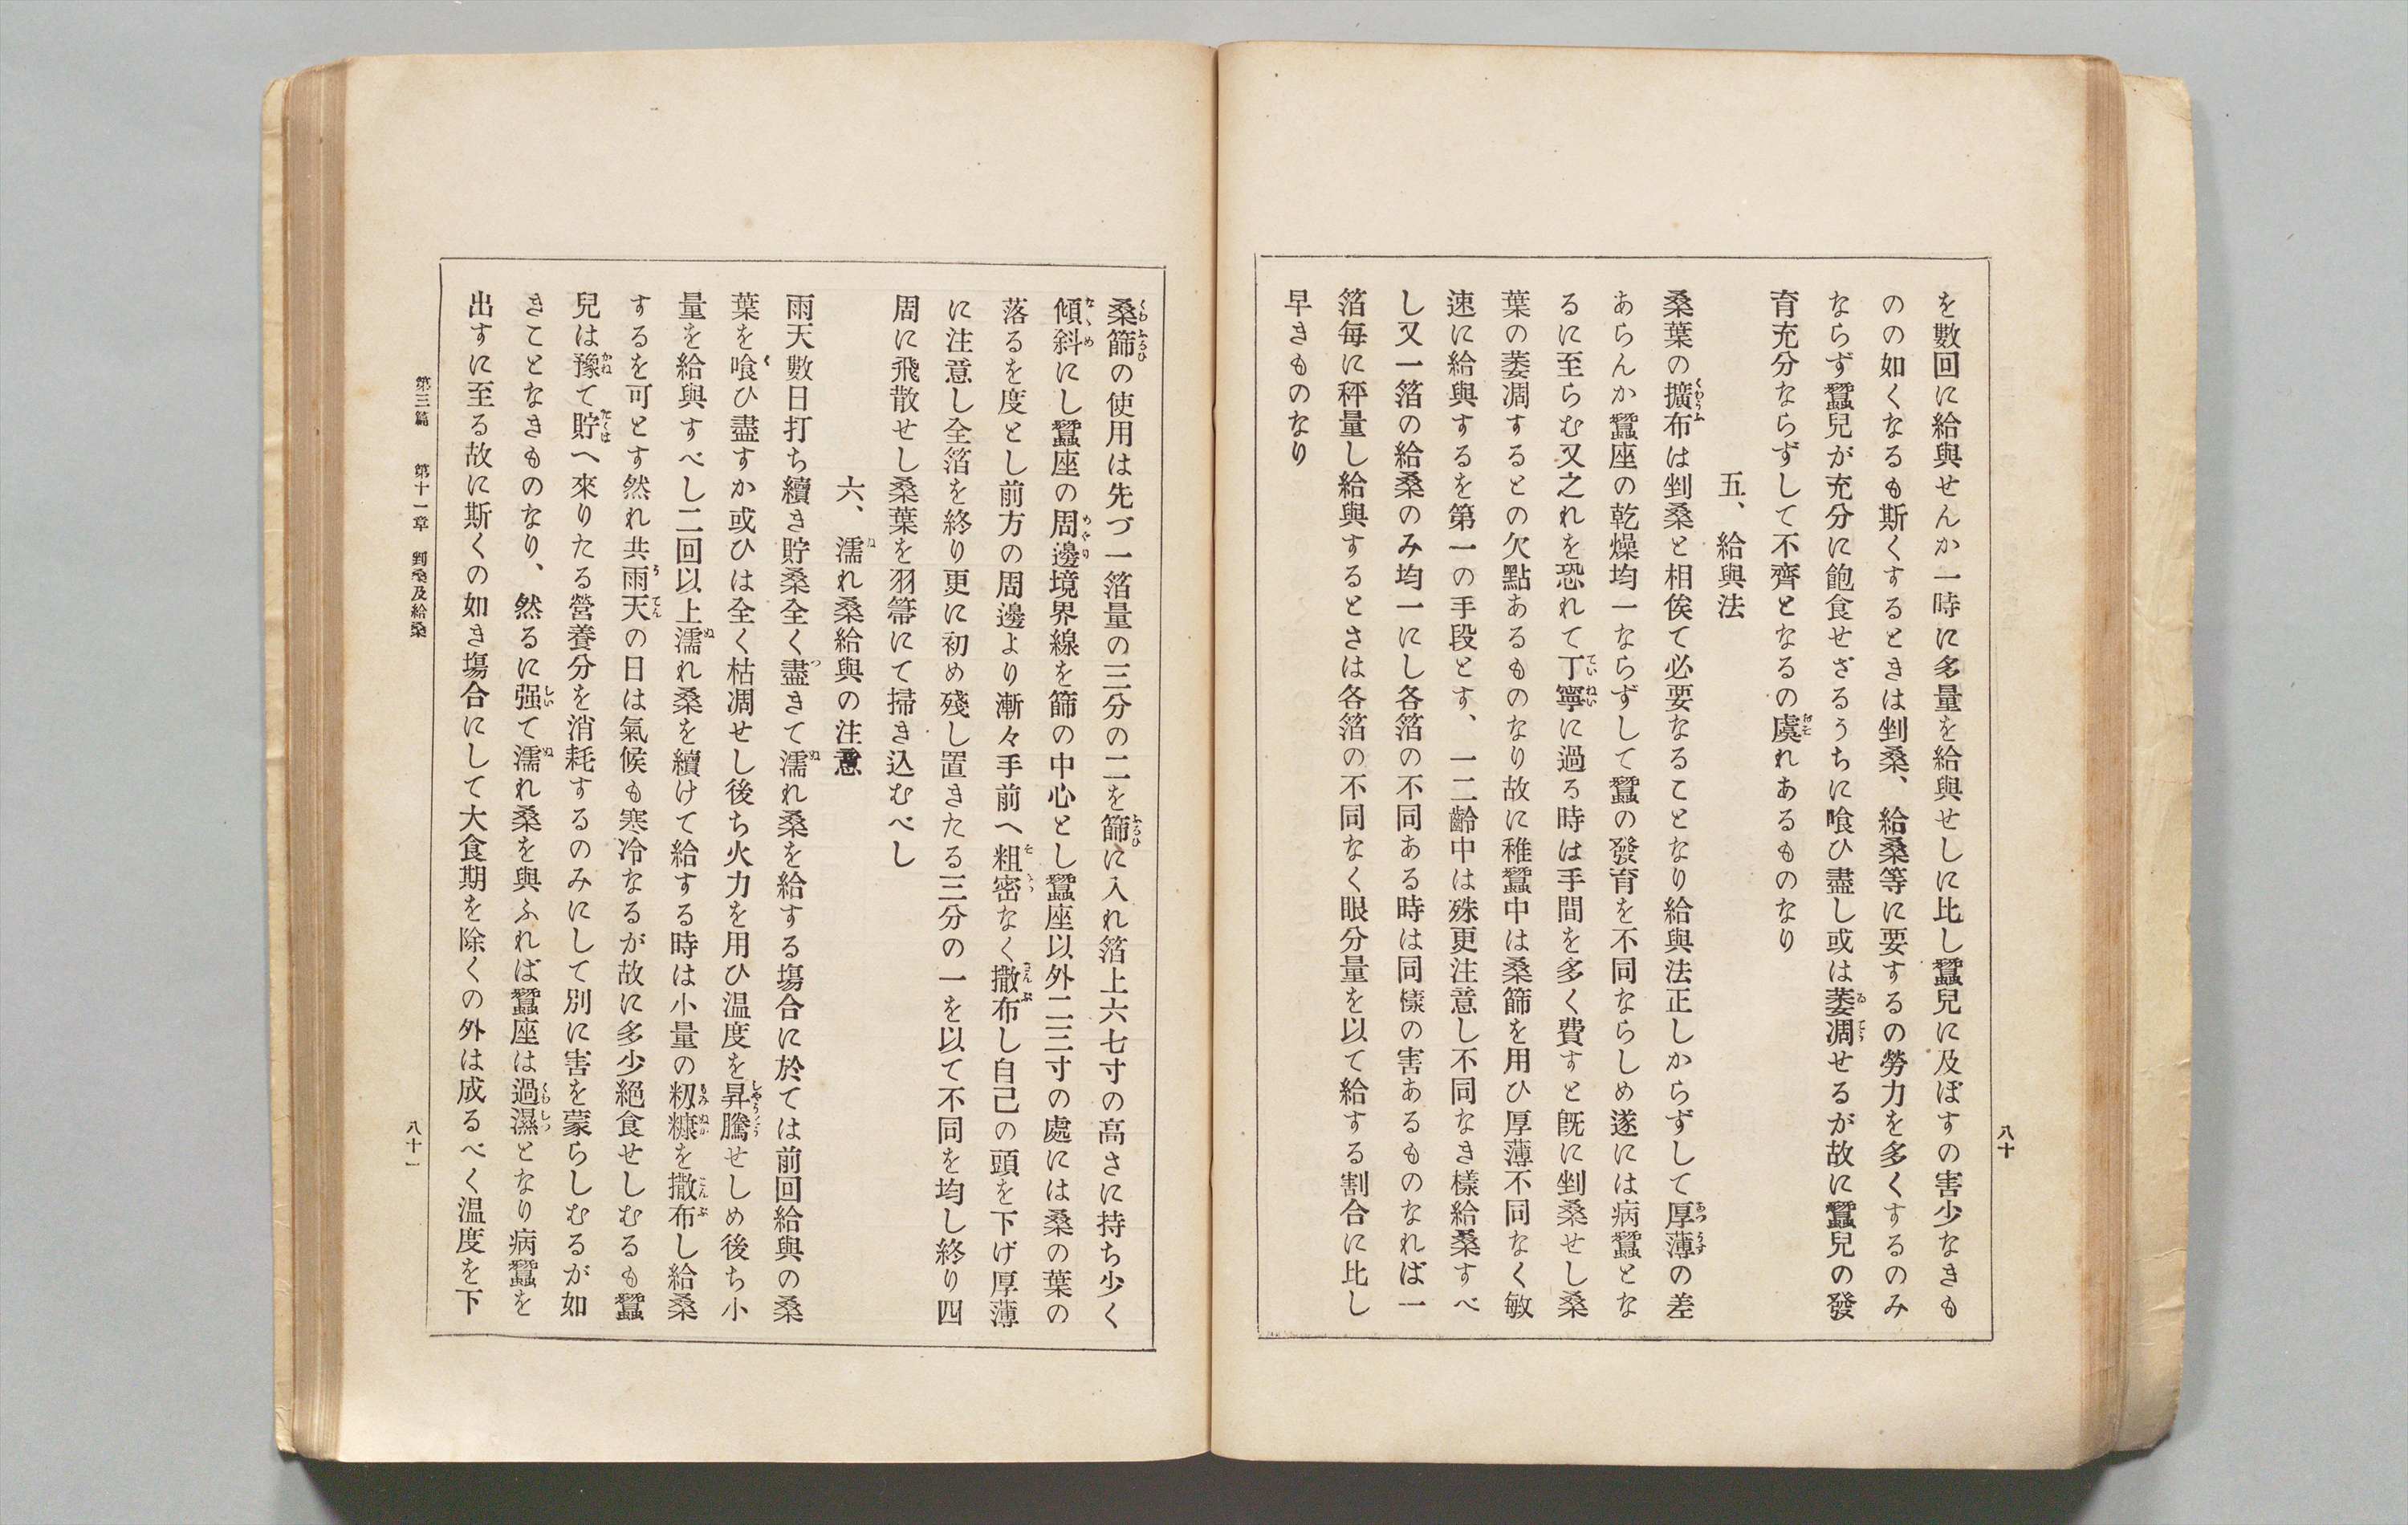 八十
を數回に給與せんか一時に多量を給與せしに比し蠶兒に及ぼすの害少なきも
のの如くなるも斯くするときは剉桑、給桑等に要するの勞力を多くするのみ
ならず蠶兒が充分に飽食せざるうちに喰ひ盡し或は萎凋せるが故に蠶兒の發
育充分ならずして不齊となるの虞れあるものなり
五、給與法
桑葉の擴布は剉桑と相俟て必要なることなり給與法正しからずして厚薄の差
あらんか蠶座の乾燥均一ならずして蠶の發育を不同ならしめ遂には病蠶とな
るに至らむ又之れを恐れて丁寧に過る時は手間を多く費すと旣に剉桑せし桑
葉の萎凋するとの欠點あるものなり故に稚蠶中は桑篩を用ひ厚薄不同なく敏
速に給與するを第一の手段とす、一二齡中は殊更注意し不同なき樣給桑すべ
し又一箔の給桑のみ均一にし各箔の不同ある時は同樣の害あるものなれば一
箔每に秤量し給與するとさは各箔の不同なく眼分量を以て給する割合に比し
早きものなり
桑篩の使用は先づ一箔量の三分の二を篩に入れ箔上六七寸の高さに持ち少く
傾斜にし蠶座の周邊境界線を篩の中心とし蠶座以外二三寸の處には桑の葉の
落るを度とし前方の周邊より漸々手前へ粗密なく撒布し自己の頭を下げ厚薄
に注意し全箔を終り更に初め殘し置きたる三分の一を以て不同を均し終り四
周に飛散せし桑葉を羽箒にて掃き込むべし
六、濡れ桑給與の注意
雨天數日打ち續き貯桑全く盡きて濡れ桑を給する塲合に於ては前回給與の桑
葉を喰ひ盡すか或ひは全く枯凋せし後ち火力を用ひ温度を昇騰せしめ後ち小
量を給與すべし二回以上濡れ桑を續けて給する時は小量の籾糠を撒布し給桑
するを可とす然れ共雨天の日は氣候も寒冷なるが故に多少絕食せしむるも蠶
兒は豫て貯へ來りたる營養分を消耗するのみにして別に害を蒙らしむるが如
きことなきものなり、然るに强て濡れ桑を與ふれば蠶座は過濕となり病蠶を
出すに至る故に斯くの如き塲合にして大食期を除くの外は成るべく温度を下
第三篇　第十一章　剉桑及給桑
八十一